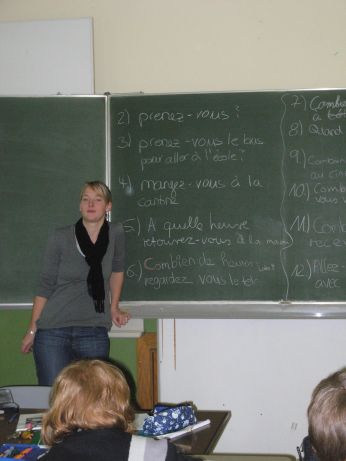 2) prenez-vous ?
3) prenez-vous le bus
pour aller à l'école ?
4) mangez-vous à la
cantine
5) A quelle heure
retournez-vous à la
6) Combien de
regardez vous la télé
7) Combien
a
8) Quand
9) Combien
au
10) Comb
vous
11) Com
12) Allez-
avec